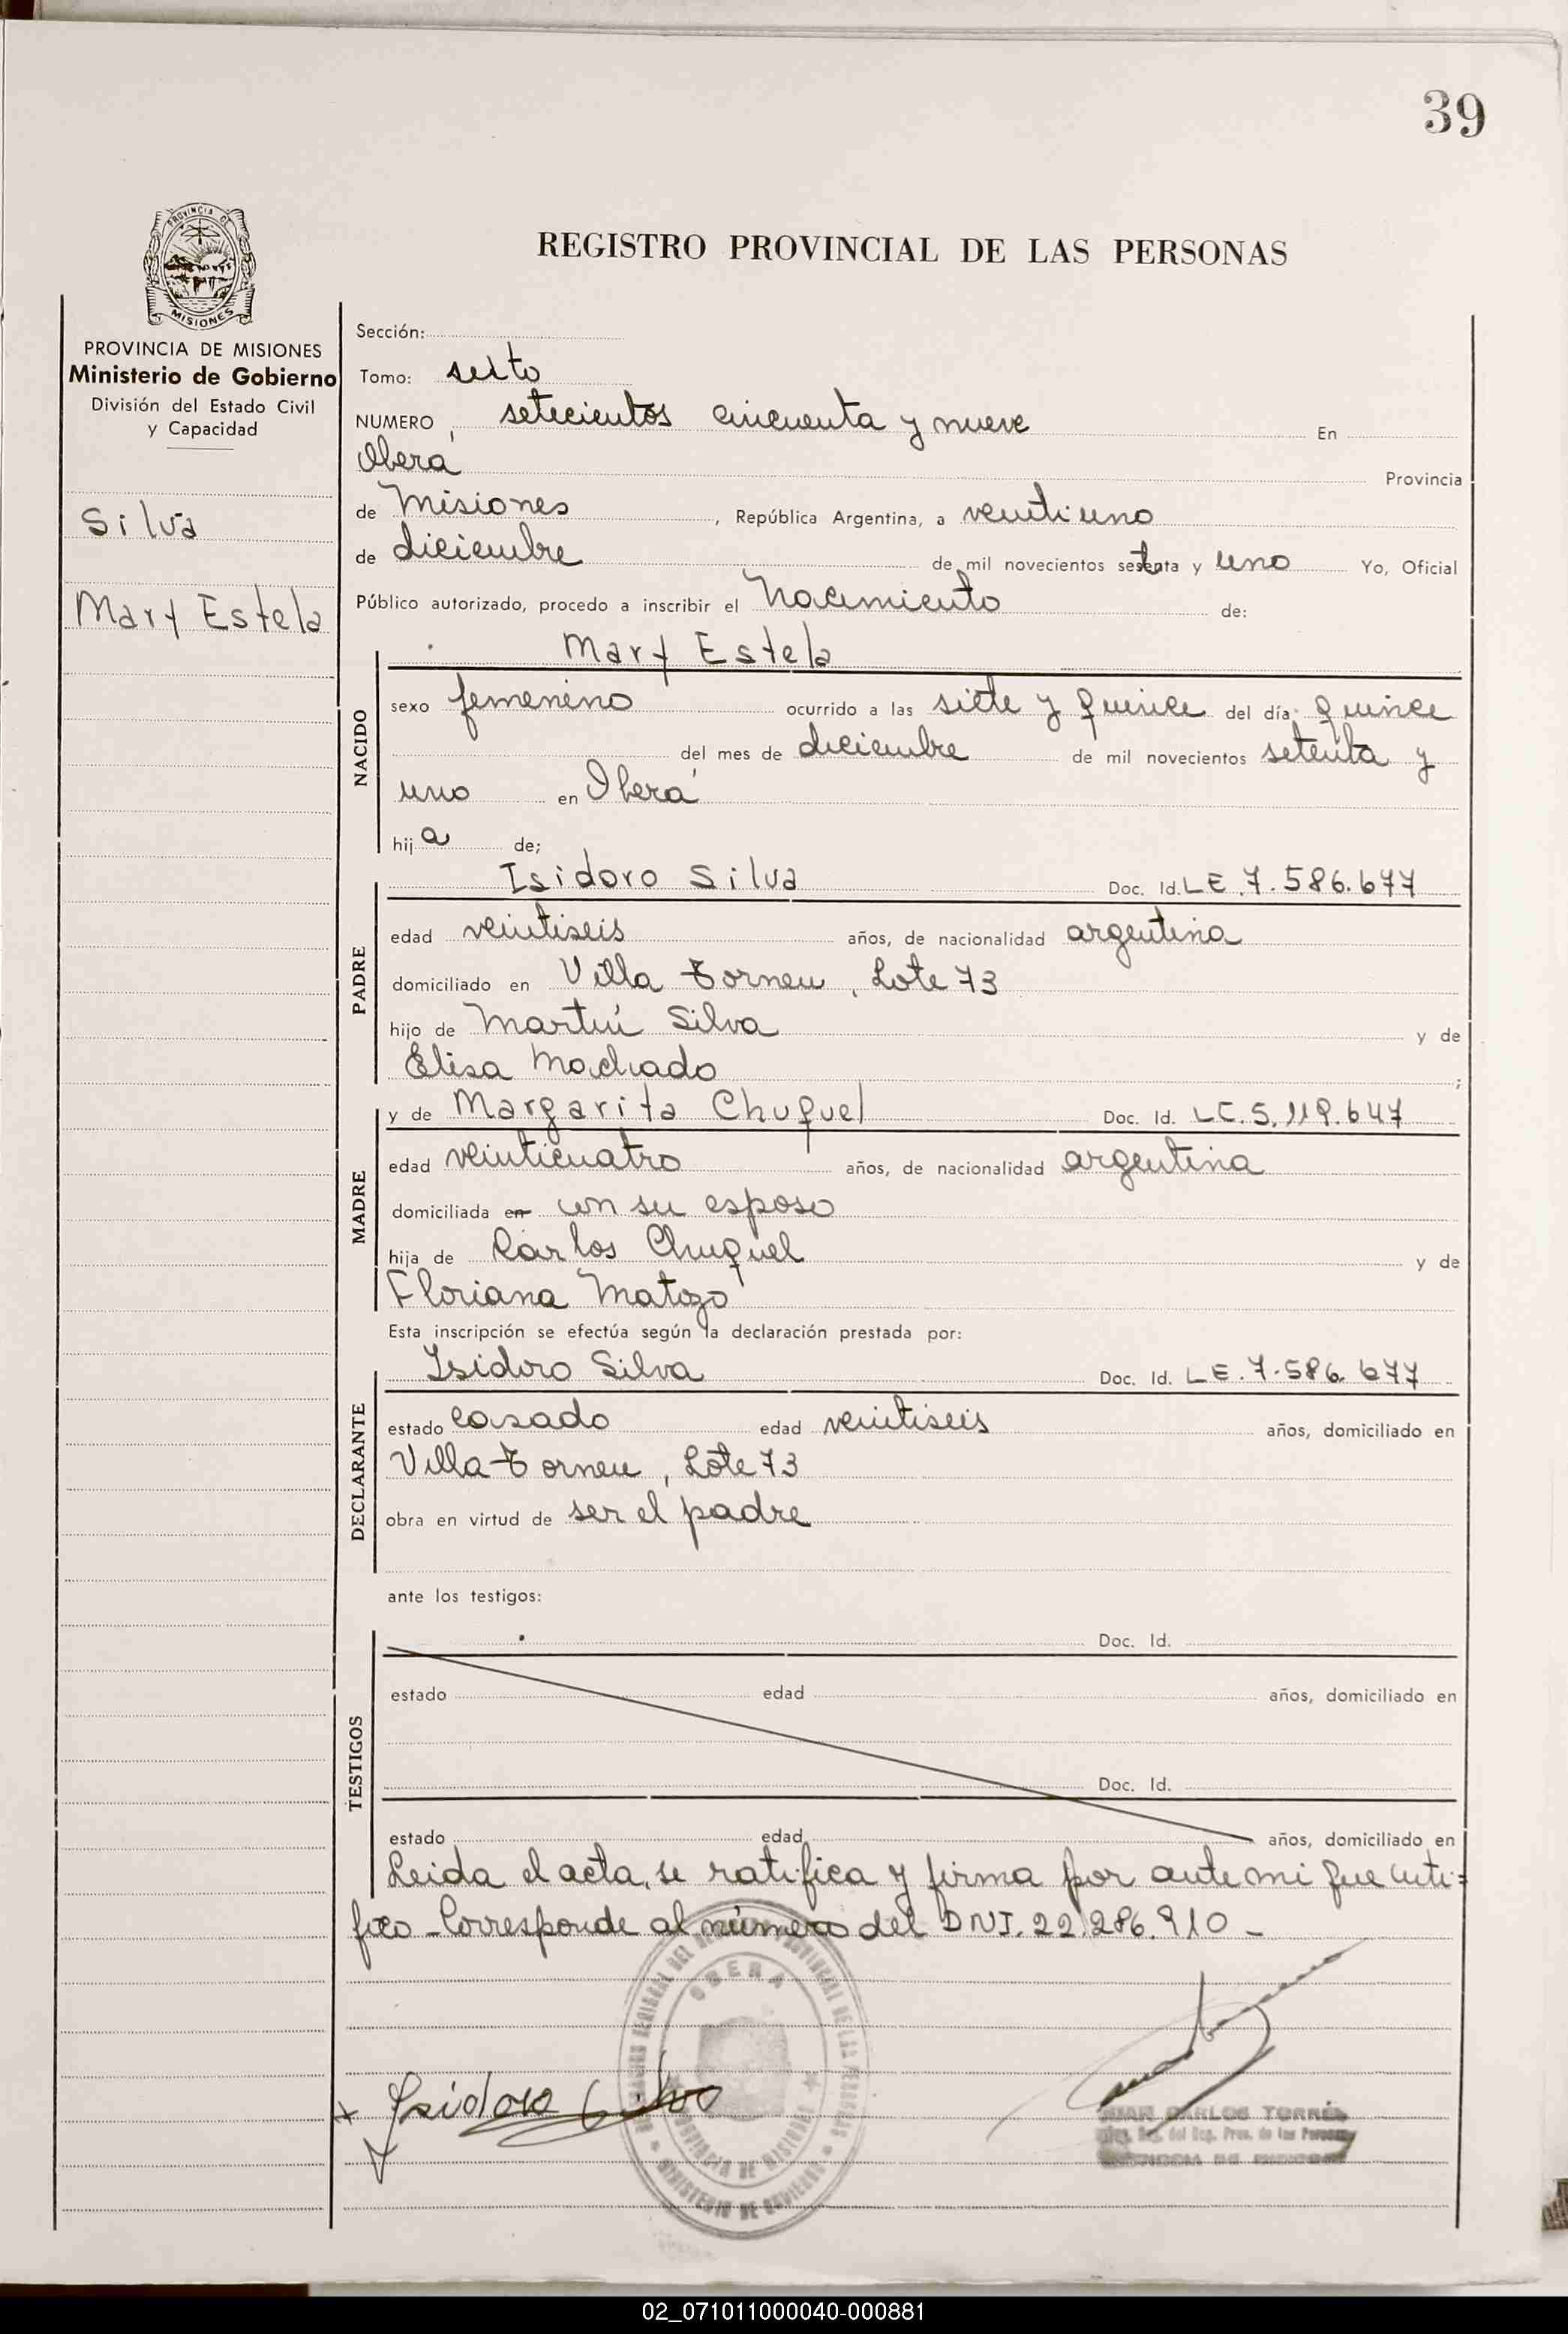 39
PROVINCIA DE
MISIONES
REGISTRO PROVINCIAL DE LAS PERSONAS
PROVINCIA DE MISIONES
Ministerio de Gobierno
División del Estado Civil
y Capacidad
Silva
Mary Estela
Sección:
Tomo: sexto
NUMERO setecientos cincuenta y nueve En
Oberá Provincia
de Misiones, República Argentina, a veintiuno
de diciembre de mil novecientos setenta y uno Yo, Oficial
Público autorizado, procedo a inscribir el Nacimiento de:
Mary Estela
NACIDO
sexo femenino ocurrido a las siete y quince del día quince
del mes de diciembre de mil novecientos setenta y
uno en Oberá
hija de;
PADRE
Isidoro Silva Doc. Id. LE.7.586.677
edad veintiseis años, de nacionalidad argentina
domiciliado en Villa Torneu, Lote 73
hijo de Martín Silva y de
Elisa Machado;
MADRE
y de Margarita Chuquel Doc. Id. LC.5.119.647
edad veinticuatro años, de nacionalidad argentina
domiciliada en con su esposo
hija de Carlos Chuquel y de
Floriana Matozo
Esta inscripción se efectúa según la declaración prestada por:
DECLARANTE
Isidoro Silva Doc. Id. LE.7.586.677
estado casado edad veintiseis años, domiciliado en
Villa Torneu, Lote 73
obra en virtud de ser el padre
ante los testigos:
TESTIGOS
Doc. Id.
estado edad años, domiciliado en
Doc. Id.
estado edad años, domiciliado en
Leida el acta, se ratifica y firma por ante mi que certi=
fico - Corresponde al número del DNI. 22.286.910 -
OBERA
PROVINCIA DE MISIONES
MINISTERIO DE GOBIERNO
Isidoro Silva
JUAN CARLOS TORRES
02_071011000040-000881